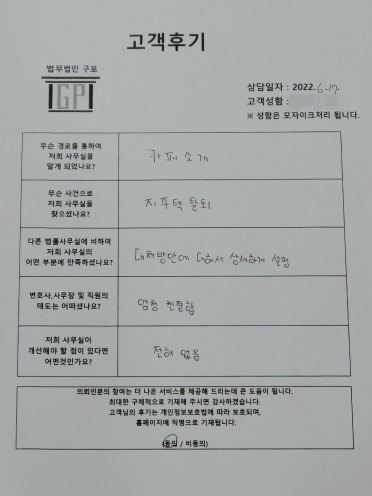 고객후기
법무법인 구포
GP
상담일자 : 2022.6.17.
고객성함 :
※ 성함은 모자이크처리 됩니다.
무슨 경로를 통하여
저희 사무실을
알게 되었나요?
카페 소개
무슨 사건으로
저희 사무실을
찾으셨나요?
지주택 탈퇴
다른 법률사무실에 비하여
저희 사무실의
어떤 부분에 만족하셨나요?
대처방안에 대해서 상세하게 설명
변호사,사무장 및 직원의
태도는 어떠셨나요?
엄청 친절함
저희 사무실이
개선해야 할 점이 있다면
어떤것인가요?
전혀 없음
의뢰인분의 참여는 더 나은 서비스를 제공해 드리는데 큰 도움이 됩니다.
최대한 구체적으로 기재해 주시면 감사하겠습니다.
고객님의 후기는 개인정보보호법에 따라 보호되며,
홈페이지에 익명으로 기재됩니다.
(동의 / 비동의)